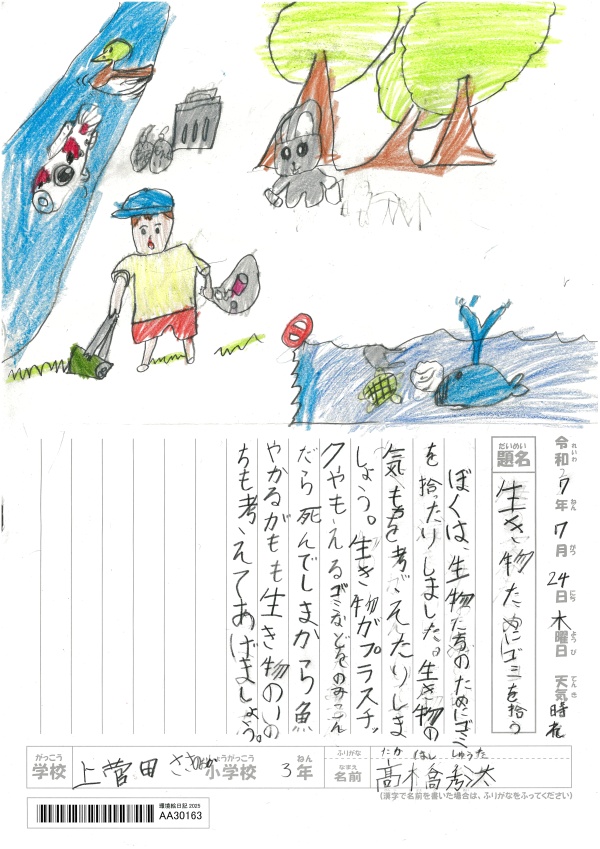 令和7年7月24日木曜日 天気 晴れ
れいわ ねん がつ にち ようび てんき
だいめい
題名
生き物ためにゴミを拾う
ぼくは、生物たちのためにゴミ
を拾ったりしました。生き物の
気もちを考がえたりしま
しょう。生き物がプラスチッ
クやもえるゴミなどをのみこん
だら死んでしまから魚
やかるがもも生き物のいの
ちも考えてあげましょう。
がっこう しょうがっこう ねん
学校 上菅田 小学校 3年
ふりがな たか はし しゅうた
なまえ
名前 髙橋
(漢字で名前を書いた場合は、ふりがなをふってください)
環境絵日記2025
AA30163